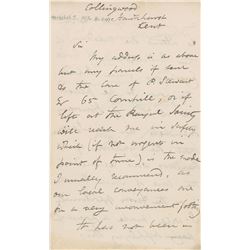 Collingwood
Hawkhurst
Kent
Sir
My address is as above
but any parcels if sent
to the care of P Stewart
Esr 65 Cornhill, or if
left at the Royal Society
will reach me in safety
which (if not urgent in
point of time) is the mode
I usually recommend, as
our local conveyances are
on a very inconvenient footing
It has not been in